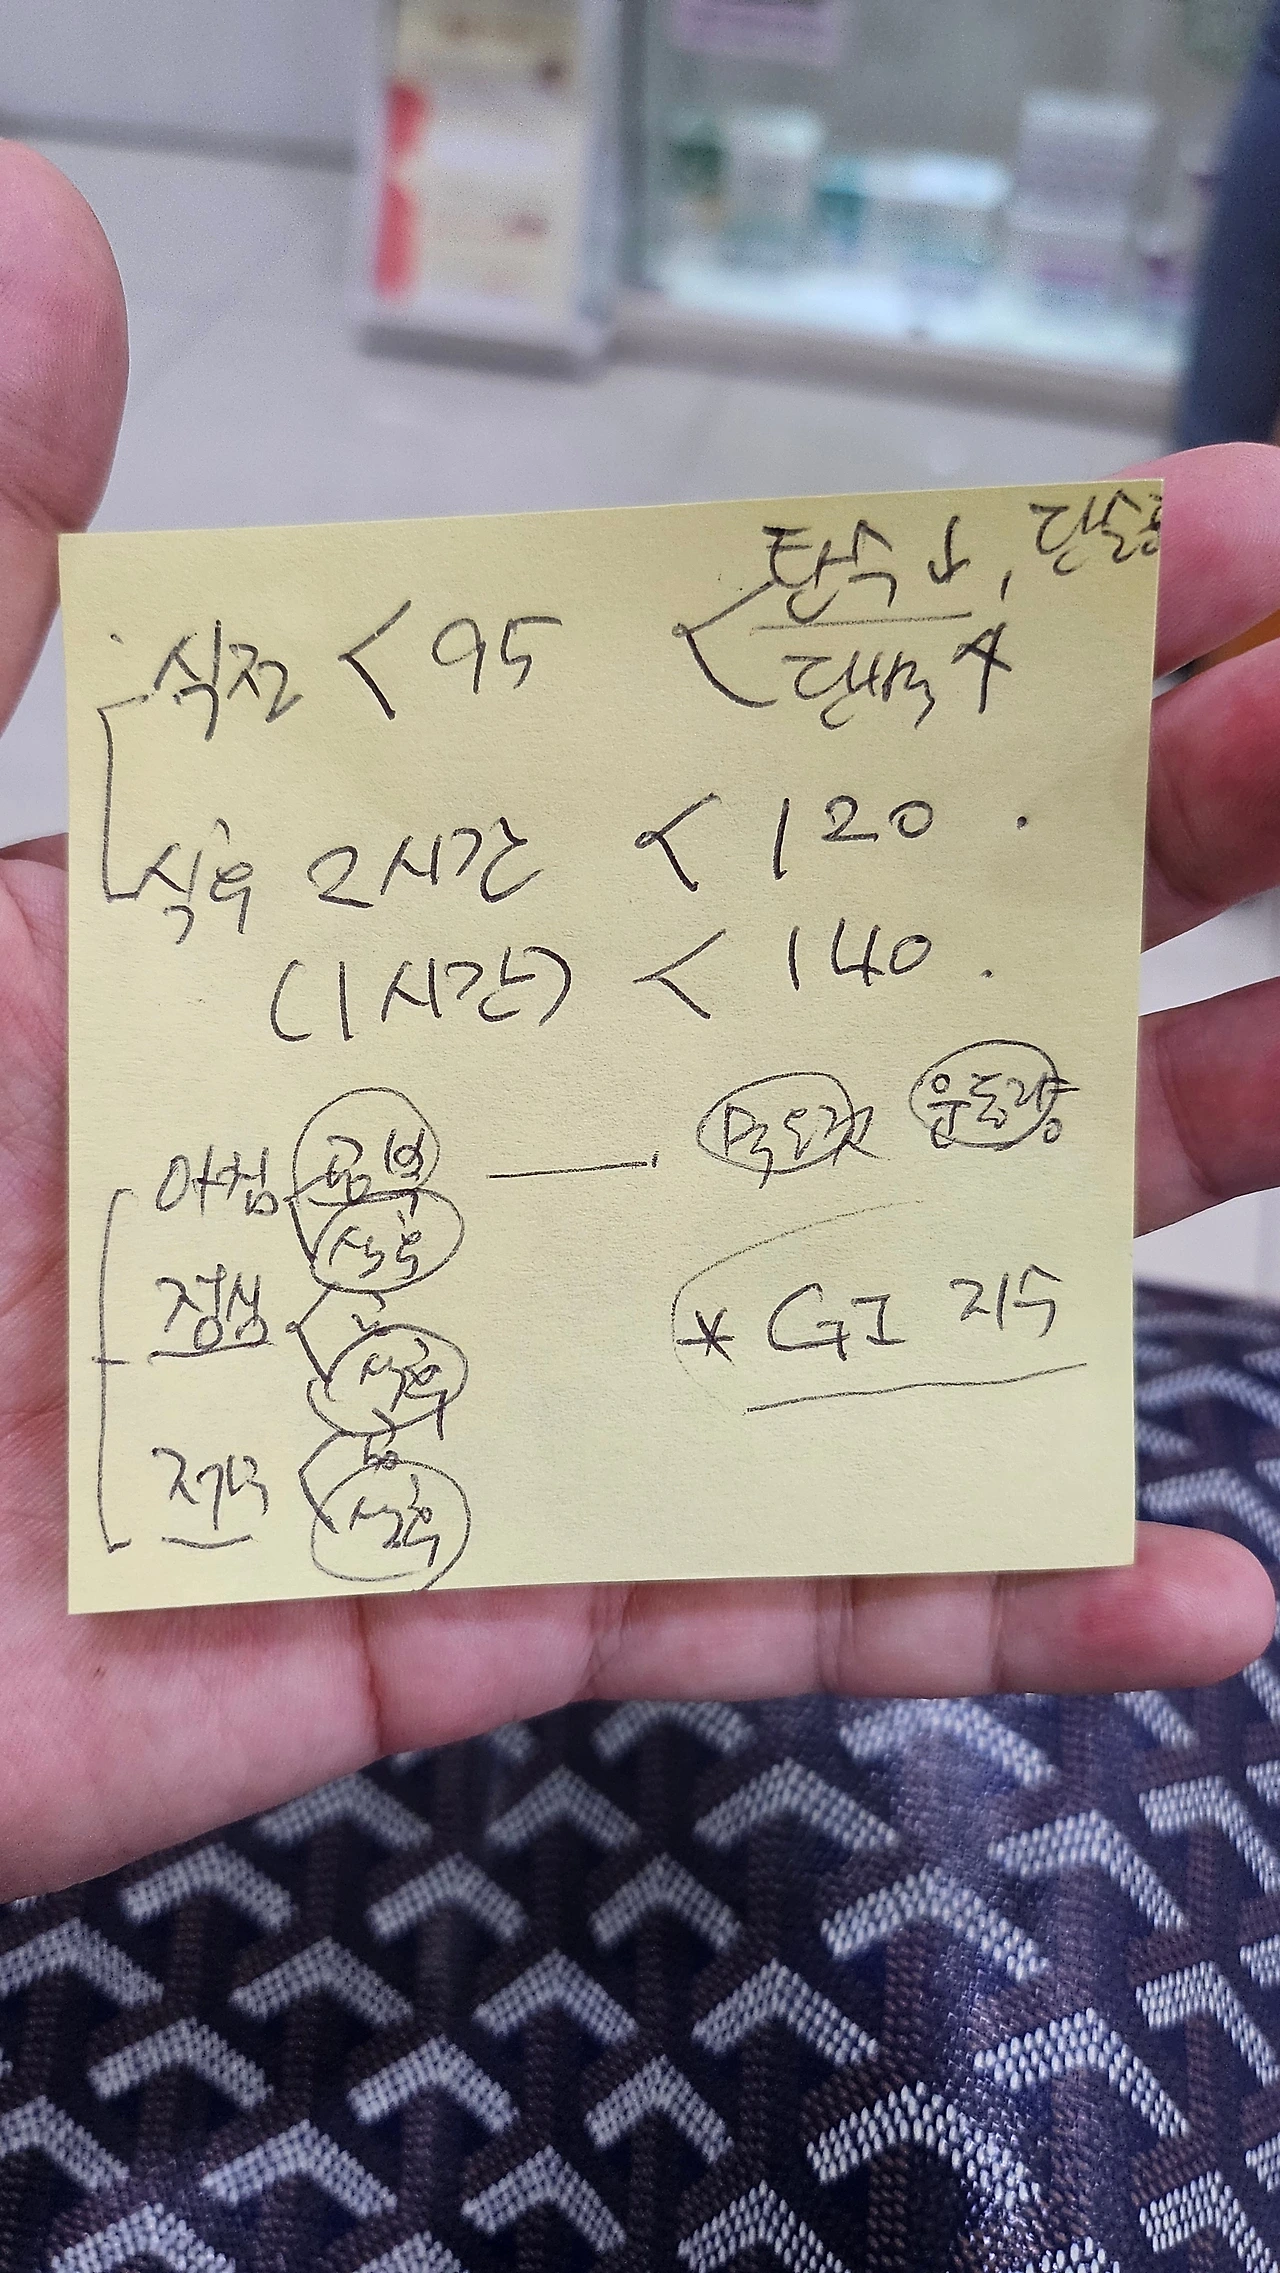 탄수↓, 단순당
식전 < 95
단백↑
식후 2시간 < 120.
(1시간) < 140.
아침 공복 — 먹은것 운동량
식후
점심
식후
* GI 지수
저녁
식후